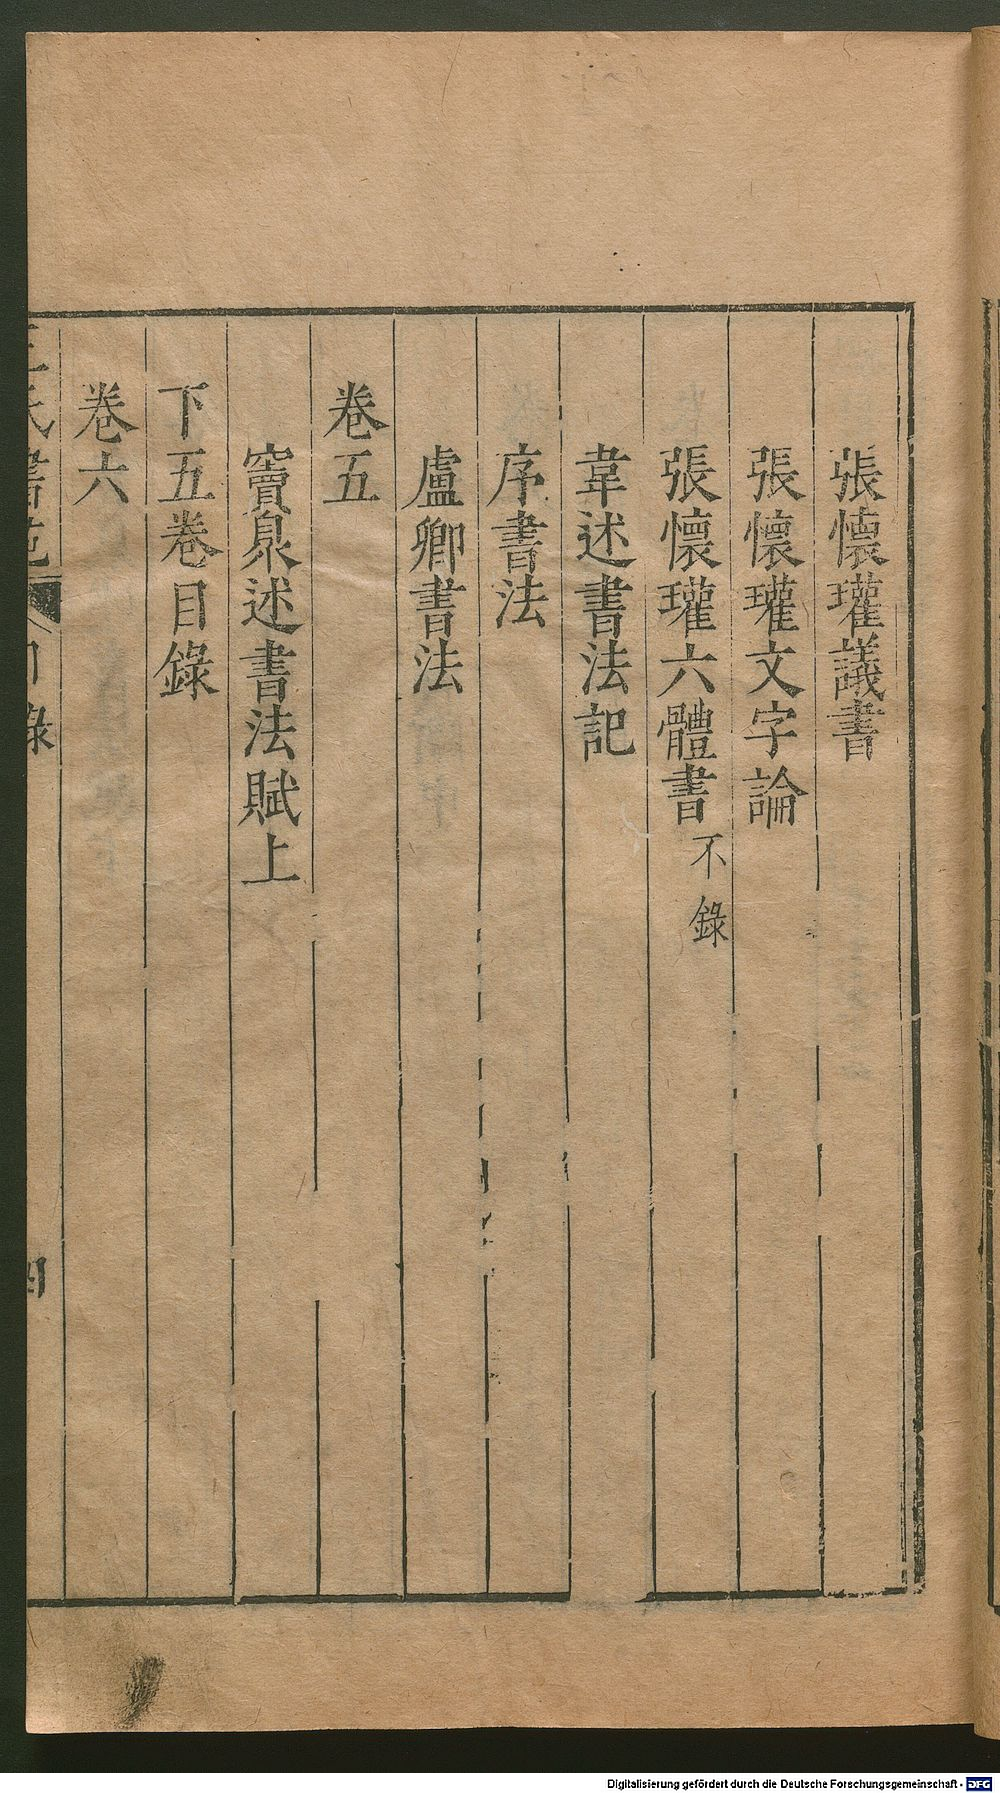 張懷瓘議書
張懷瓘文字論
張懷瓘六體書不錄
韋述書法記
序書法
盧卿書法
卷五
竇臮述書法賦上
下五卷目錄
卷六
王氏書苑 目錄 四
Digitalisierung gefördert durch die Deutsche Forschungsgemeinschaft - DFG